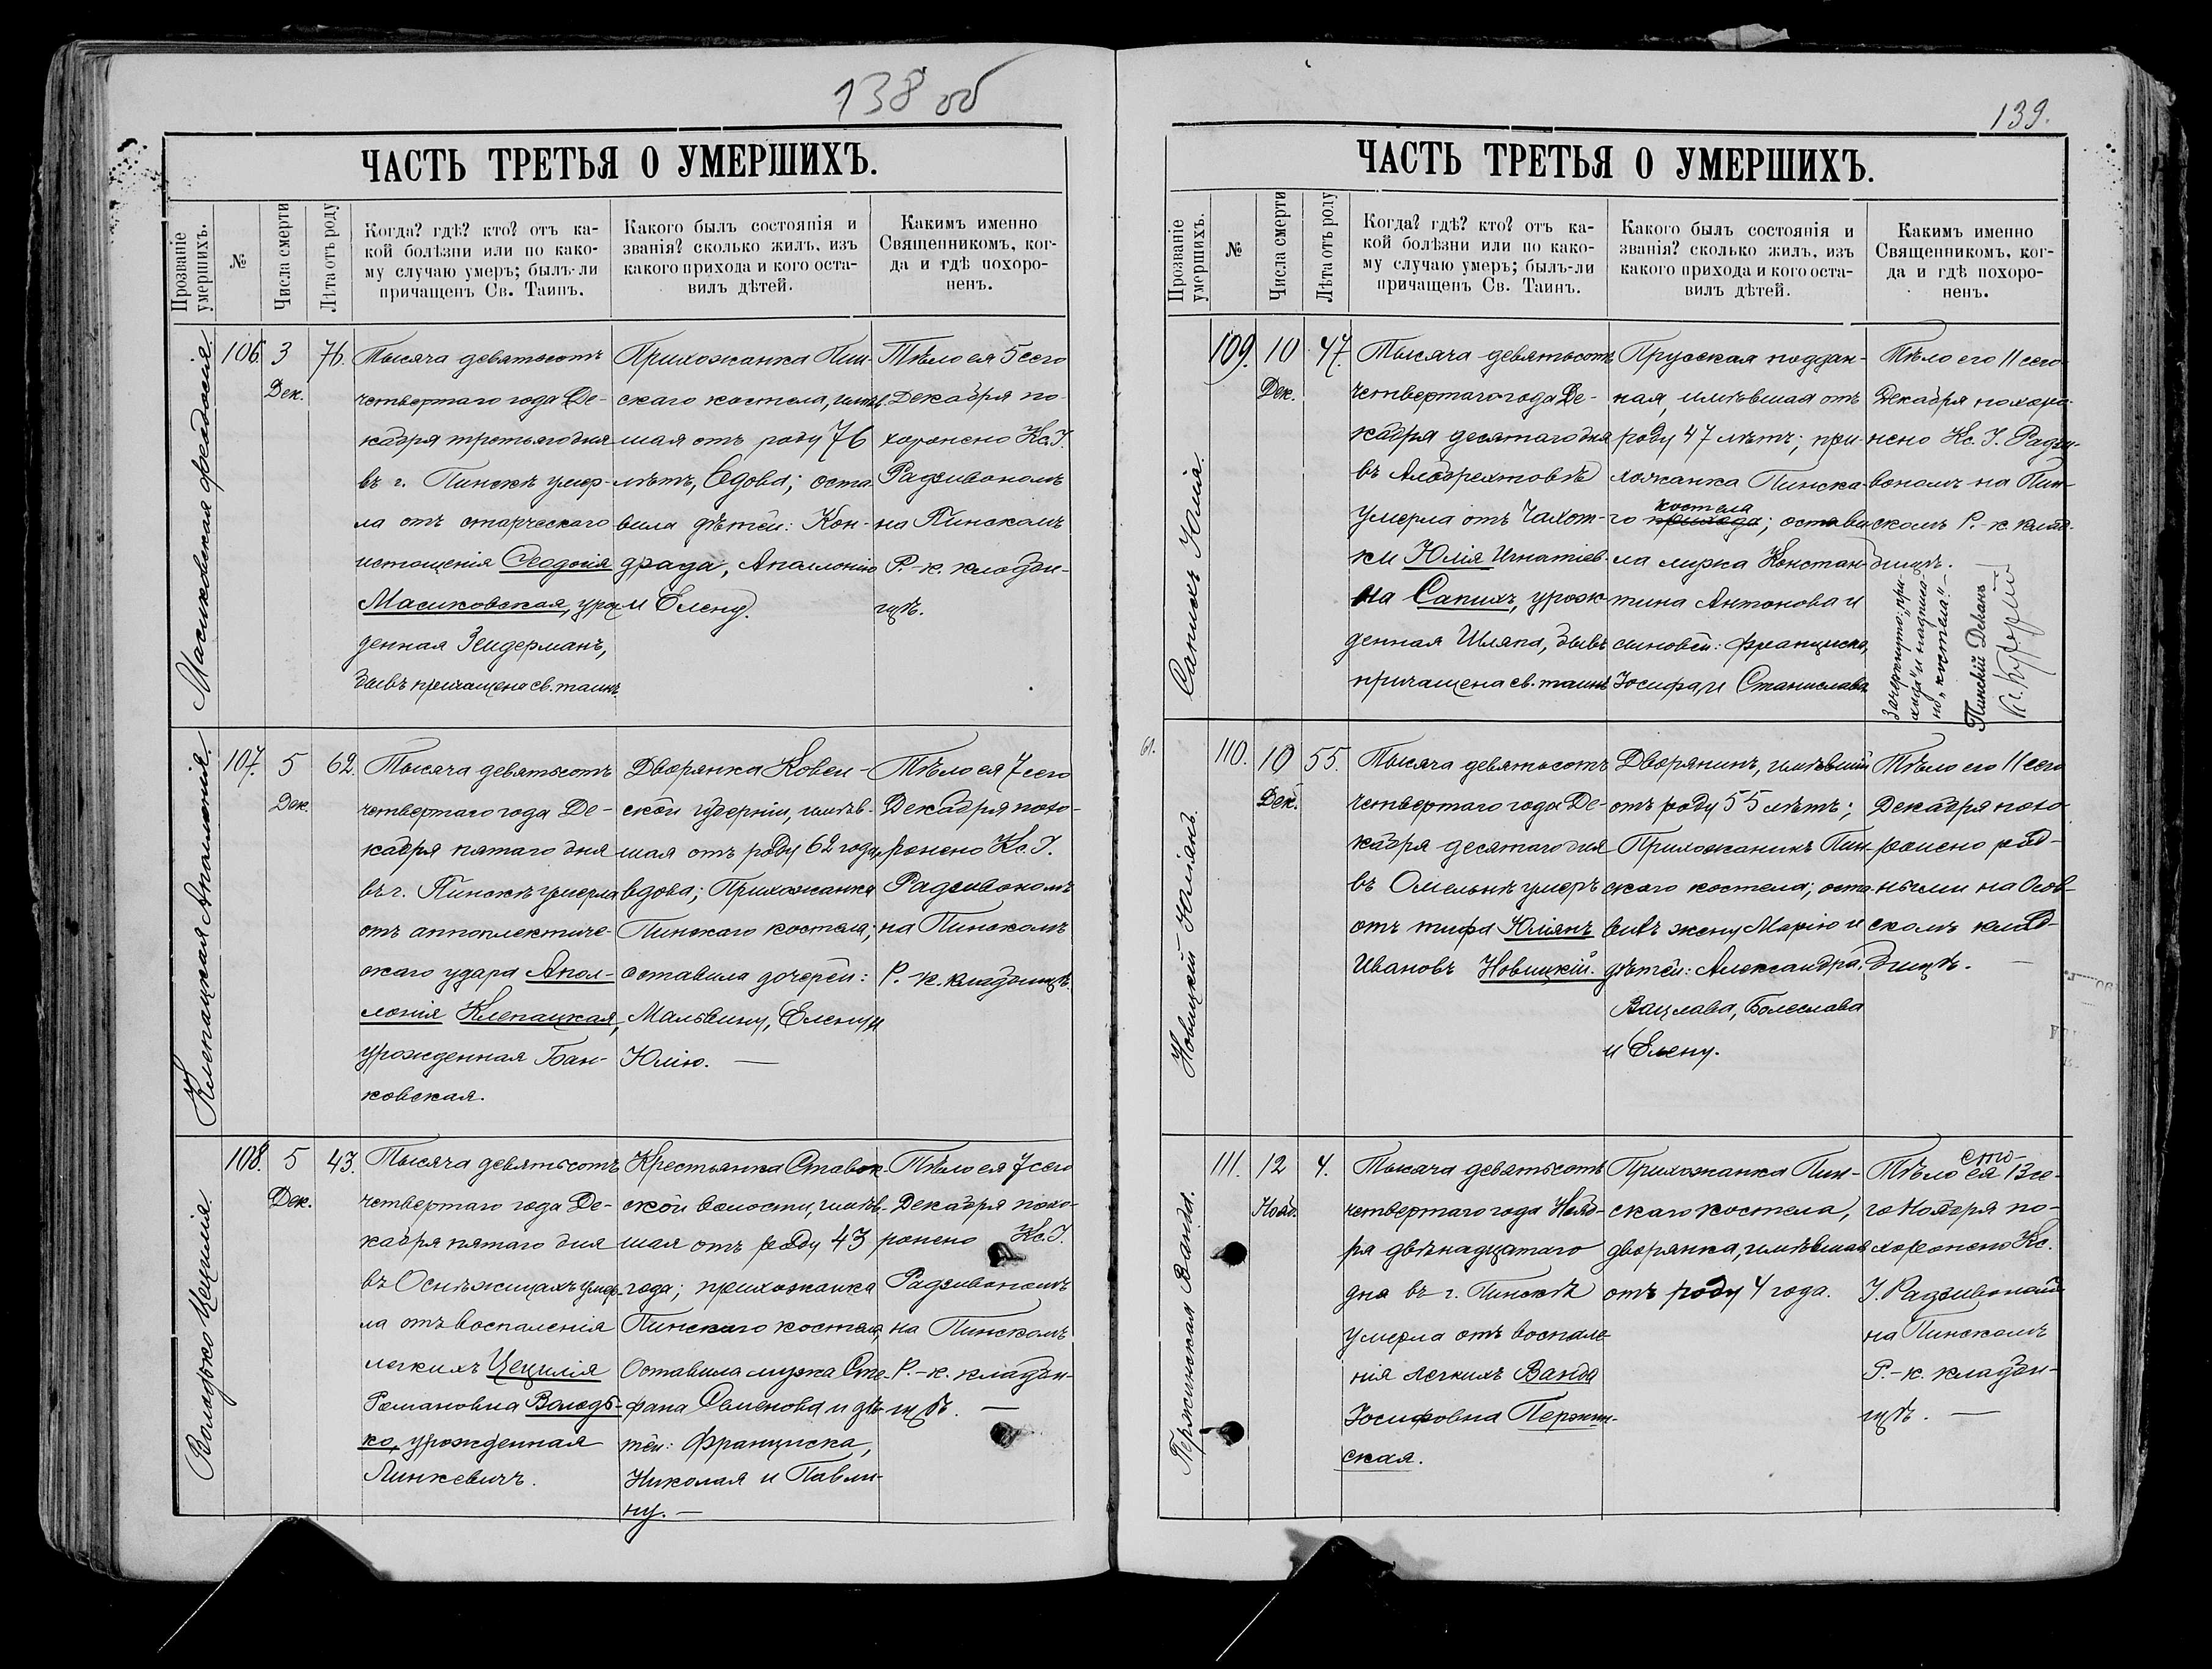 138 об
ЧАСТЬ ТРЕТЬЯ О УМЕРШИХЪ.
Прозваніе умершихъ.
№
Числа смерти
Лѣта отъ роду
Когда? гдѣ? кто? отъ ка-
кой болѣзни или по како-
му случаю умеръ; былъ-ли
причащенъ Св. Таинъ.
Какого былъ состоянія и
званія? сколько жилъ, изъ
какого прихода и кого оста-
вилъ дѣтей.
Какимъ именно
Священникомъ, ког-
да и гдѣ похоро-
ненъ.
Масиковская Феодосія.
106.
3
Дек.
76.
Тысяча девятьсотъ
четвертаго года Де-
кабря третьяго дня
въ г. Пинскѣ умер-
ла отъ старческаго
истощенія Феодосія
Масиковская, уро
денная Зейдерманъ,
бывъ причащена св. таинъ
Прихожанка Пин-
скаго костела, имѣв-
шая отъ роду 76
лѣтъ, Вдова; оста-
вила дѣтей: Кон-
драда, Аполонію
и Елену.
Тѣло ея 5 сего
Декабря по-
хоронено Кс. І.
Радзивономъ
на Пинскомъ
Р.-к. кладби-
щѣ.
Клепацкая Аполлонія.
107.
5
Дек.
62.
Тысяча девятьсотъ
четвертаго года Де-
кабря пятаго дня
въ г. Пинскѣ умерла
отъ апоплектиче-
скаго удара Апол-
лонія Клепацкая,
урожденная Бан-
ковская.
Дворянка Ковен-
ской губерніи, имѣв-
шая отъ роду 62 года,
вдова; Прихожанка
Пинскаго костела;
оставила дочерей:
Мальвину, Елену и
Юлію. —
Тѣло ея 7 сего
Декабря похо-
ронено Кс. І.
Радзивономъ
на Пинскомъ
Р.-к. кладбищѣ.
Володько Цецилія.
108.
5
Дек.
43.
Тысяча девятьсотъ
четвертаго года Де-
кабря пятаго дня
въ Оснѣжицахъ умер-
ла отъ воспаленія
легкихъ Цецилія
Романовна Володь-
ко, урожденная
Линкевичъ.
Крестьянка Ставок-
ской волости, имѣв-
шая отъ роду 43
года; прихожанка
Пинскаго костела,
Оставила мужа Сте-
фана Семенова и дѣ-
тей: Франциска,
Николая и Павли-
ну. —
Тѣло ея 7 сего
Декабря похо-
ронено Кс. І.
Радзивономъ
на Пинскомъ
Р.-к. кладби-
щѣ. —
139.
ЧАСТЬ ТРЕТЬЯ О УМЕРШИХЪ.
Прозваніе умершихъ.
№
Числа смерти
Лѣта отъ роду
Когда? гдѣ? кто? отъ ка-
кой болѣзни или по како-
му случаю умеръ; былъ-ли
причащенъ Св. Таинъ.
Какого былъ состоянія и
званія? сколько жилъ, изъ
какого прихода и кого оста-
вилъ дѣтей.
Какимъ именно
Священникомъ, ког-
да и гдѣ похоро-
ненъ.
Сапихъ Юлія.
109.
10
Дек.
47.
Тысяча девятьсотъ
четвертаго года Де-
кабря десятаго дня
въ Альбрехтовѣ
умерла отъ Чахот-
ки Юлія Игнатіев-
на Сапихъ, урож-
денная Шляпа, бывъ
причащена св. таинъ
Прусская поддан-
ная, имѣвшая отъ
роду 47 лѣтъ; при-
хожанка Пинска-
костела
го прихода; остави-
ла мужа Констан-
тина Антонова и
сыновей: Франциска,
Іосифа, и Станислава
Тѣло его 11 сего
Декабря похоро-
нено Кс. І. Радзи-
вономъ на Пин-
скомъ Р.-к. клад-
бищѣ.
Зачеркнуто „при-
хода“ и надписа-
но „костела“.—
Пинскій Деканъ
61.
Новицкій Юліянъ.
110.
10
Дек.
55.
Тысяча девятьсотъ
четвертаго года Де-
кабря десятаго дня
въ Омельнѣ умеръ
отъ тифа Юліянъ
Ивановъ Новицкій.
Дворянинъ, имѣвшій
отъ роду 55 лѣтъ;
Прихожанинъ Пин-
скаго костела; оста-
вивъ жену Марію и
дѣтей: Александра,
Вацлава, Болеслава
и Елену.
Тѣло его 11 сего
Декабря похо-
ронено род-
ными на Осов-
скомъ клад-
бищѣ. —
Пержинская Ванда.
111.
12
Нояб.
4.
Тысяча девятьсотъ
четвертаго года Нояб-
ря двѣнадцатаго
дня въ г. Пинскѣ
умерла отъ воспале-
нія легкихъ Ванда
Іосифовна Пержин-
ская.
Прихожанка Пин-
скаго костела,
дворянка, имѣвшая
отъ роду 4 года.
Тѣло ея 13 се-
го Ноября по-
хоронено Кс.
І. Радзивономъ
на Пинскомъ
Р.-к. кладби-
щѣ. —